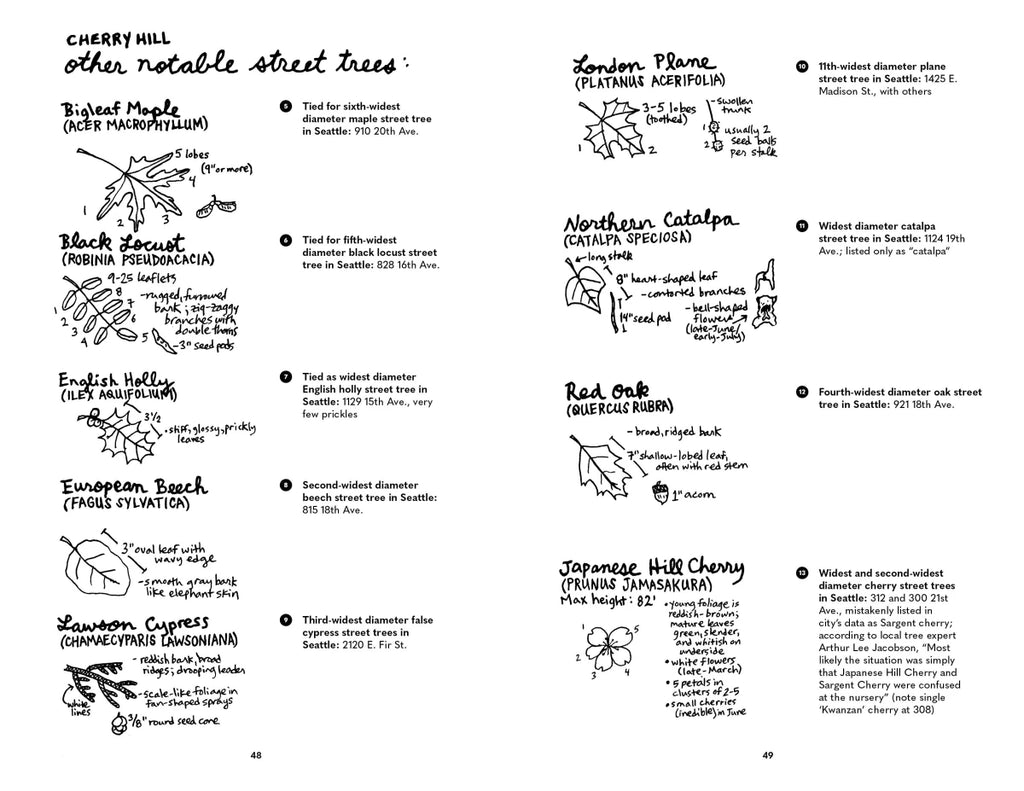 CHERRY HILL
other notable street trees:
Bigleaf Maple
(ACER MACROPHYLLUM)
5 lobes
(9" or more)
4
1
2
3
5 Tied for sixth-widest
diameter maple street tree
in Seattle: 910 20th Ave.
Black Locust
(ROBINIA PSEUDOACACIA)
9-25 leaflets
8
7
6
1
2
3
4
5
-rugged, furrowed
bark; zig-zaggy
branches with
double thorns
-3" seed pods
6 Tied for fifth-widest
diameter black locust street
tree in Seattle: 828 16th Ave.
English Holly
(ILEX AQUIFOLIUM)
3½
•stiff, glossy, prickly
leaves
7 Tied as widest diameter
English holly street tree in
Seattle: 1129 15th Ave., very
few prickles
European Beech
(FAGUS SYLVATICA)
3" oval leaf with
wavy edge
-smooth gray bark
like elephant skin
8 Second-widest diameter
beech street tree in Seattle:
815 18th Ave.
Lawson Cypress
(CHAMAECYPARIS LAWSONIANA)
- reddish bark, broad
ridges; drooping leader
-scale-like foliage in
fan-shaped sprays
white
lines
3/8" round seed cone
9 Third-widest diameter false
cypress street trees in
Seattle: 2120 E. Fir St.
48
London Plane
(PLATANUS ACERIFOLIA)
3-5 lobes
(toothed)
1
2
-swollen
trunk
1
2
usually 2
seed balls
per stalk
10 11th-widest diameter plane
street tree in Seattle: 1425 E.
Madison St., with others
Northern Catalpa
(CATALPA SPECIOSA)
long stalk
8" heart-shaped leaf
-contorted branches
14" seed pod
-bell-shaped
flowers
(late-June/
early-July)
11 Widest diameter catalpa
street tree in Seattle: 1124 19th
Ave.; listed only as “catalpa”
Red Oak
(QUERCUS RUBRA)
- broad, ridged bark
7" shallow-lobed leaf,
often with red stem
1" acorn
12 Fourth-widest diameter oak street
tree in Seattle: 921 18th Ave.
Japanese Hill Cherry
(PRUNUS JAMASAKURA)
Max height: 82'
1
2
3
4
5
•young foliage is
reddish-brown;
mature leaves
green, slender,
and whitish on
underside
•white flowers
(late-March)
•5 petals in
clusters of 2-5
•small cherries
(inedible) in June
13 Widest and second-widest
diameter cherry street trees
in Seattle: 312 and 300 21st
Ave., mistakenly listed in
city’s data as Sargent cherry;
according to local tree expert
Arthur Lee Jacobson, “Most
likely the situation was simply
that Japanese Hill Cherry and
Sargent Cherry were confused
at the nursery” (note single
‘Kwanzan’ cherry at 308)
49